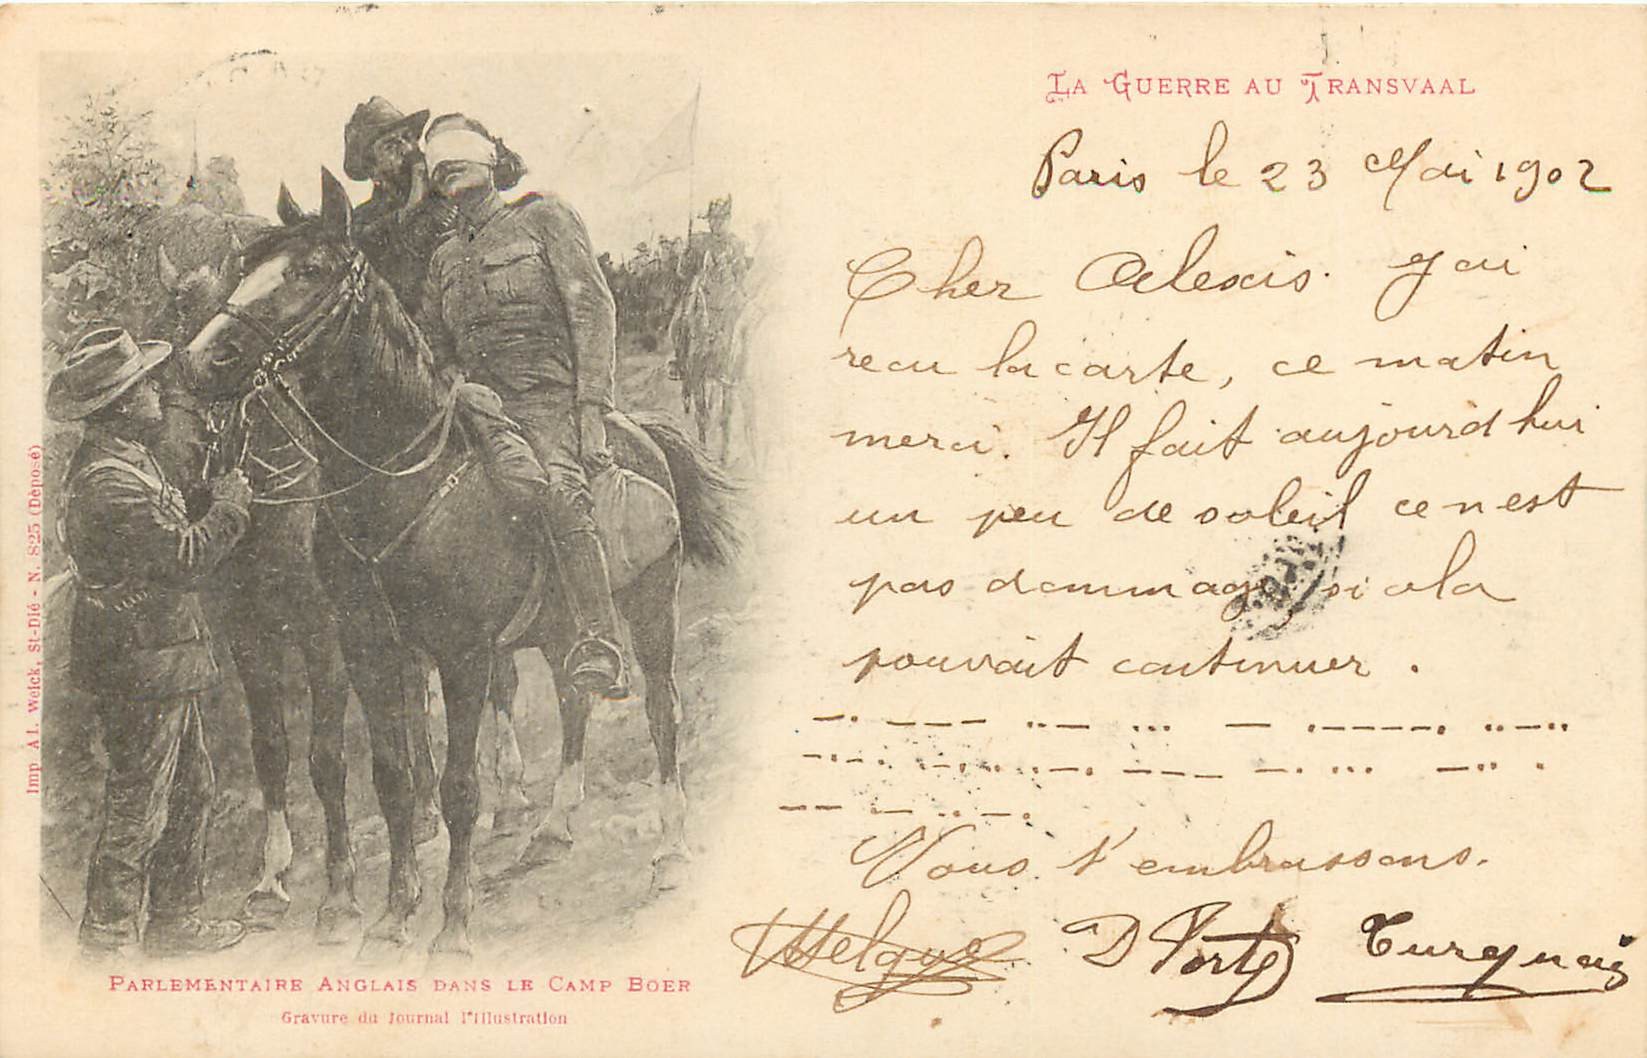 LA GUERRE AU TRANSVAAL
Paris le 23 Mai 1902
Cher Alexis. J ai
recu la carte, ce matin
merci. Il fait aujourd hui
un peu de soleil ce n est
pas dommage si cela
pouvait continuer.
Nous t'embrassons.
D Porte Turquais
PARLEMENTAIRE ANGLAIS DANS LE CAMP BOER
Gravure du Journal l'Illustration
Imp Al. Weick, St-Dié - N. 825 (Déposé)